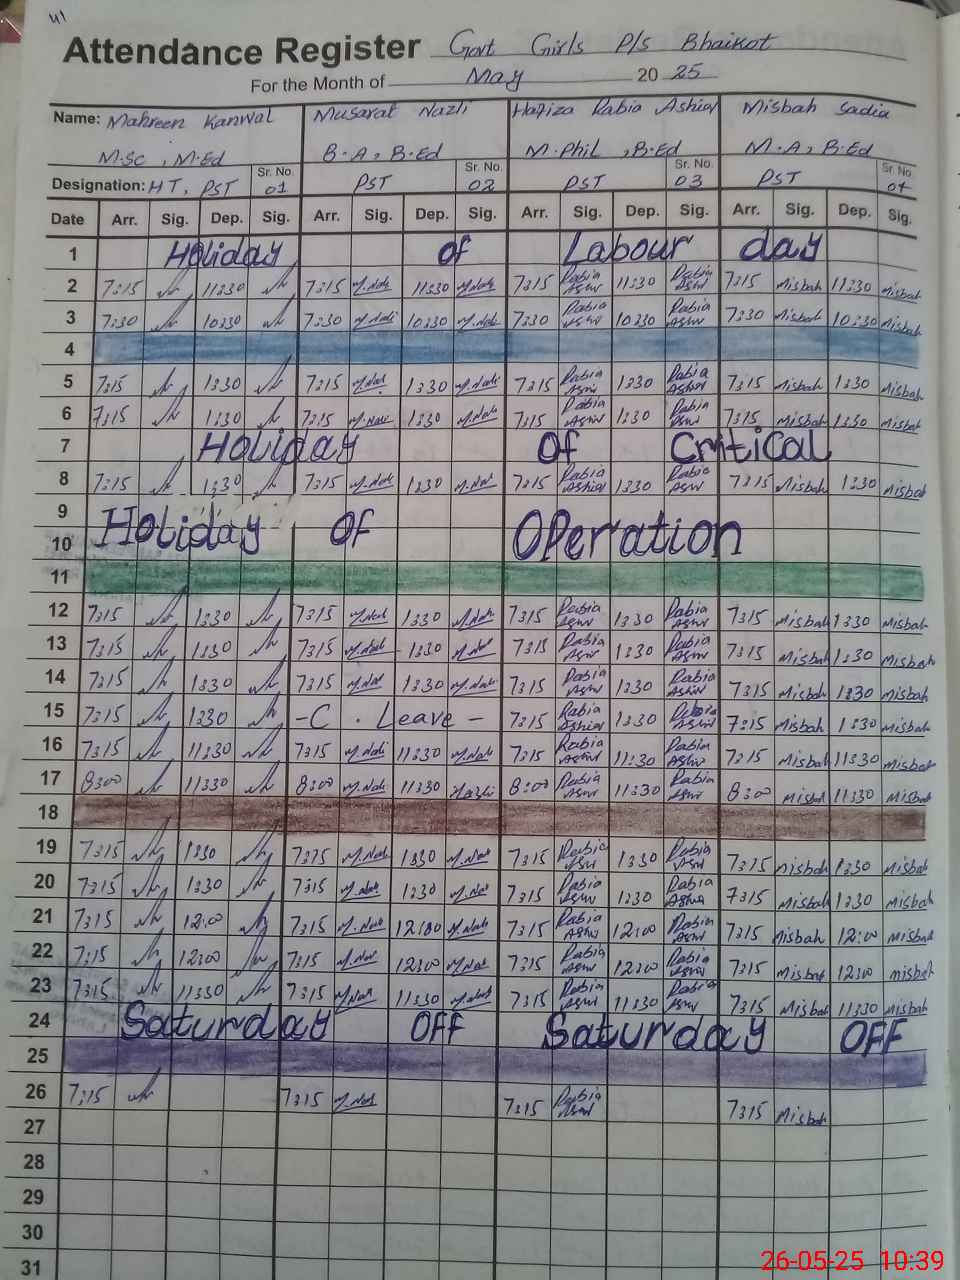 41
Attendance Register Govt Girls P/s Bhaikot
For the Month of May 20 25
Name: Mahreen Kanwal Musarat Nazli Hafiza Rabia Ashraf Misbah Sadia
M.Sc , M.Ed B.A , B.Ed M.Phil , B.Ed M.A , B.Ed
Designation: HT, PST Sr. No. 01 PST Sr. No. 02 PST Sr. No. 03 PST Sr. No. 04
Date Arr. Sig. Dep. Sig. Arr. Sig. Dep. Sig. Arr. Sig. Dep. Sig. Arr. Sig. Dep. Sig.
1 Holiday of Labour day
2 7:15 11:30 7:15 M.Nazli 11:30 M.Nazli 7:15 Rabia 11:30 Rabia 7:15 Misbah 11:30 Misbah
3 7:30 10:30 7:30 M.Nazli 10:30 M.Nazli 7:30 Rabia 10:30 Rabia 7:30 Misbah 10:30 Misbah
4
5 7:15 1:30 7:15 1:30 M.Nazli 7:15 Rabia 1:30 Rabia 7:15 Misbah 1:30 Misbah
6 7:15 1:30 7:15 1:30 7:15 Rabia 1:30 Rabia 7:15 Misbah 1:30 Misbah
7 Holiday of Critical
8 7:15 1:30 7:15 1:30 7:15 Rabia 1:30 Rabia 7:15 Misbah 1:30 Misbah
9
Holiday Of Operation
10
11
12 7:15 1:30 7:15 1:30 7:15 Rabia 1:30 Rabia 7:15 Misbah 1:30 Misbah
13 7:15 1:30 7:15 1:30 7:15 Rabia 1:30 Rabia 7:15 Misbah 1:30 Misbah
14 7:15 1:30 7:15 1:30 7:15 Rabia 1:30 Rabia 7:15 Misbah 1:30 Misbah
15 7:15 1:30 - C . Leave - 7:15 Rabia 1:30 Rabia 7:15 Misbah 1:30 Misbah
16 7:15 11:30 7:15 11:30 7:15 Rabia 11:30 Rabia 7:15 Misbah 11:30 Misbah
17 8:00 11:30 8:00 11:30 Nazli 8:00 Rabia 11:30 Rabia 8:00 Misbah 11:30 Misbah
18
19 7:15 1:30 7:15 1:30 7:15 Rabia 1:30 Rabia 7:15 Misbah 1:30 Misbah
20 7:15 1:30 7:15 1:30 7:15 Rabia 1:30 Rabia 7:15 Misbah 1:30 Misbah
21 7:15 12:00 7:15 12:00 7:15 Rabia 12:00 Rabia 7:15 Misbah 12:00 Misbah
22 7:15 12:00 7:15 12:00 7:15 Rabia 12:00 Rabia 7:15 Misbah 12:00 Misbah
23 7:15 11:30 7:15 11:30 7:15 Rabia 11:30 Rabia 7:15 Misbah 11:30 Misbah
24 Saturday OFF Saturday OFF
25
26 7:15 7:15 7:15 Rabia 7:15 Misbah
27
28
29
30
31
26-05-25 10:39